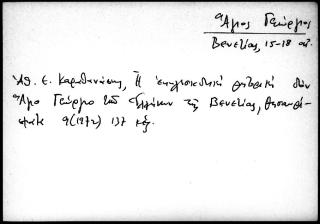 Ἅγιος Γεώργιος
Βενετίας, 15-18 αἰ.
Ἀθ. Ε. Καραθανάσης, Ἡ ἐκκλησιαστικὴ ῥητορικὴ στὸν
Ἅγιο Γεώργιο τῶν Ἑλλήνων τῆς Βενετίας, Θησαυρί-
σματα 9(1972) 137 κἑξ.